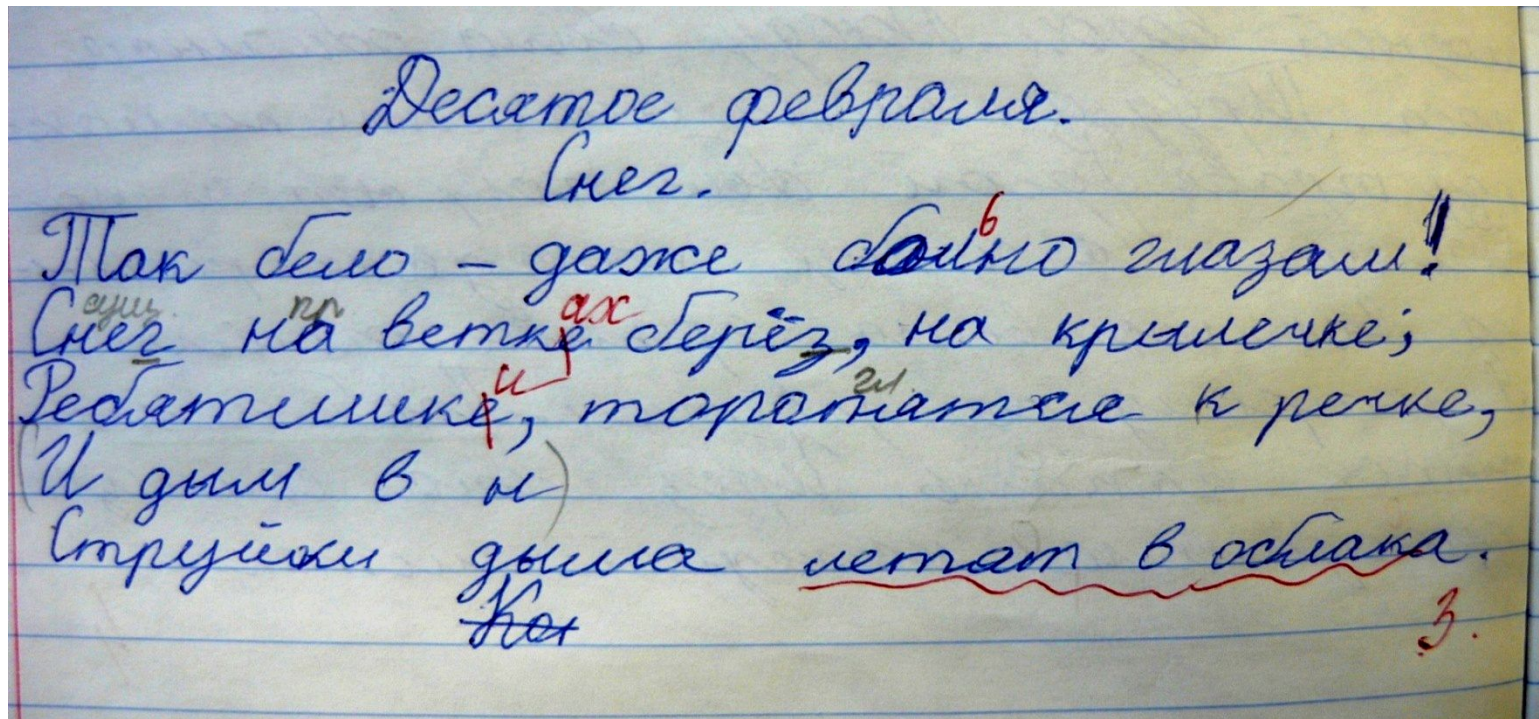 Десятое февраля.
Снег.
Так бело – даже больно глазам!
сущ. пр. ах
Снег на ветке берёз, на крылечке;
и гл.
Ребятишке, торопятся к речке,
(И дым в н)
Струйки дыма летят в облака.
Ко
3.